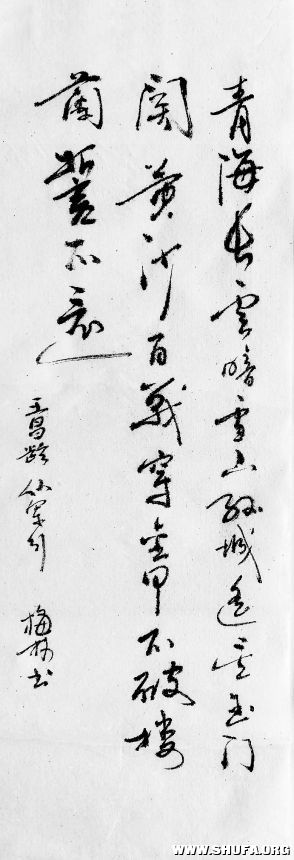 青海长云暗雪山孤城遥望玉门
关黄沙百战穿金甲不破楼
兰誓不还
王昌龄从军行
梅林书
WWW.SHUFA.ORG